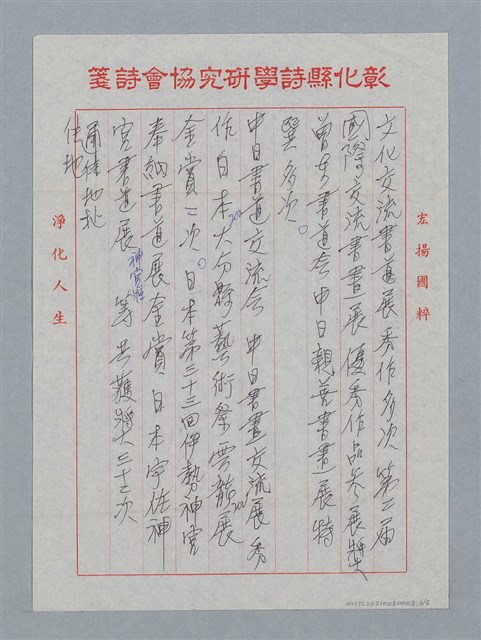 彰化縣詩學研究協會詩箋
宏揚國粹
文化交流書道展秀作多次 第二屆
國際交流書畫展優秀作品参展獎
曾京書道会中日親善書畫展特
選多次。
中日書道交流会 中日書畫交流展秀
作日本大分縣藝術祭雲龍展
金賞二次。日本第二十三回伊勢神宮
奉納書道展金賞日本宇佐神
宮書道展神官獎等共獲獎三十三次
通信地址
住地
淨化人生
NMTL20210030008.2/5